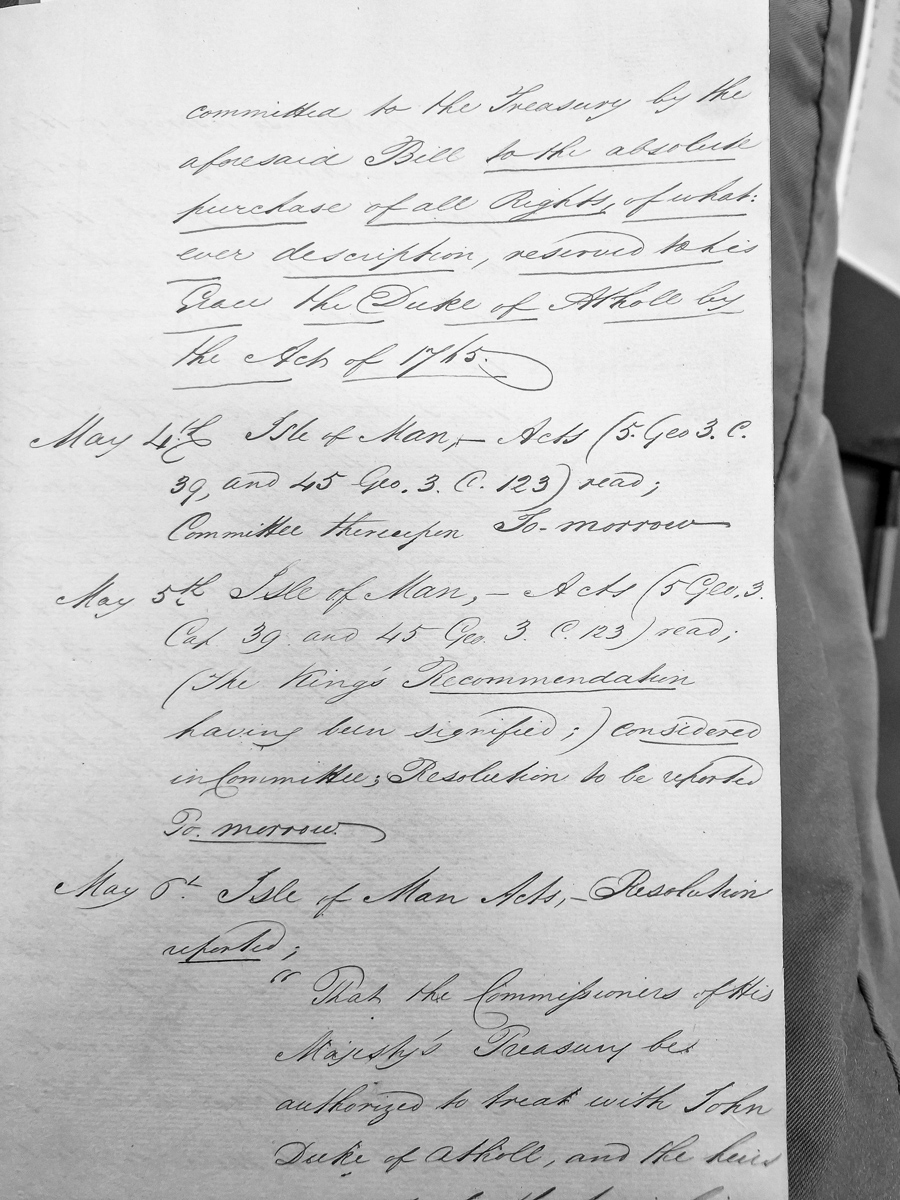 committed to the Treasury by the
aforesaid Bill to the absolute
purchase of all Rights, of what:
ever description, reserved to his
Grace the Duke of Atholl by
the Act of 1765.
May 4th Isle of Man, – Acts (5. Geo 3. C.
39, and 45 Geo. 3. C. 123) read;
Committee thereupon To-morrow
May 5th Isle of Man, – Acts (5 Geo. 3.
Cap 39 and 45 Geo. 3. C. 123) read;
(The King's Recommendation
having been signified;) considered
in Committee; Resolution to be reported
To. morrow.
May 6th Isle of Man Acts, – Resolution
reported;
"That the Commissioners of His
Majesty's Treasury be
authorized to treat with John
Duke of Atholl, and the heirs